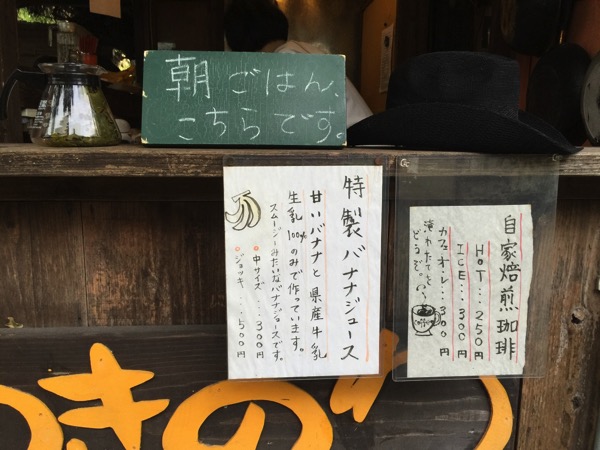 朝ごはん、
こちらです。
特製バナナジュース
甘いバナナと県産牛乳
生乳100%のみで作っています。
スムージーみたいなバナナジュースです。
中サイズ...300円
ジョッキ...500円
自家焙煎珈琲
HOT...250円
ICE...300円
カフェ・オ・レ...300円
淹れたてを
どうぞ。
きのわ